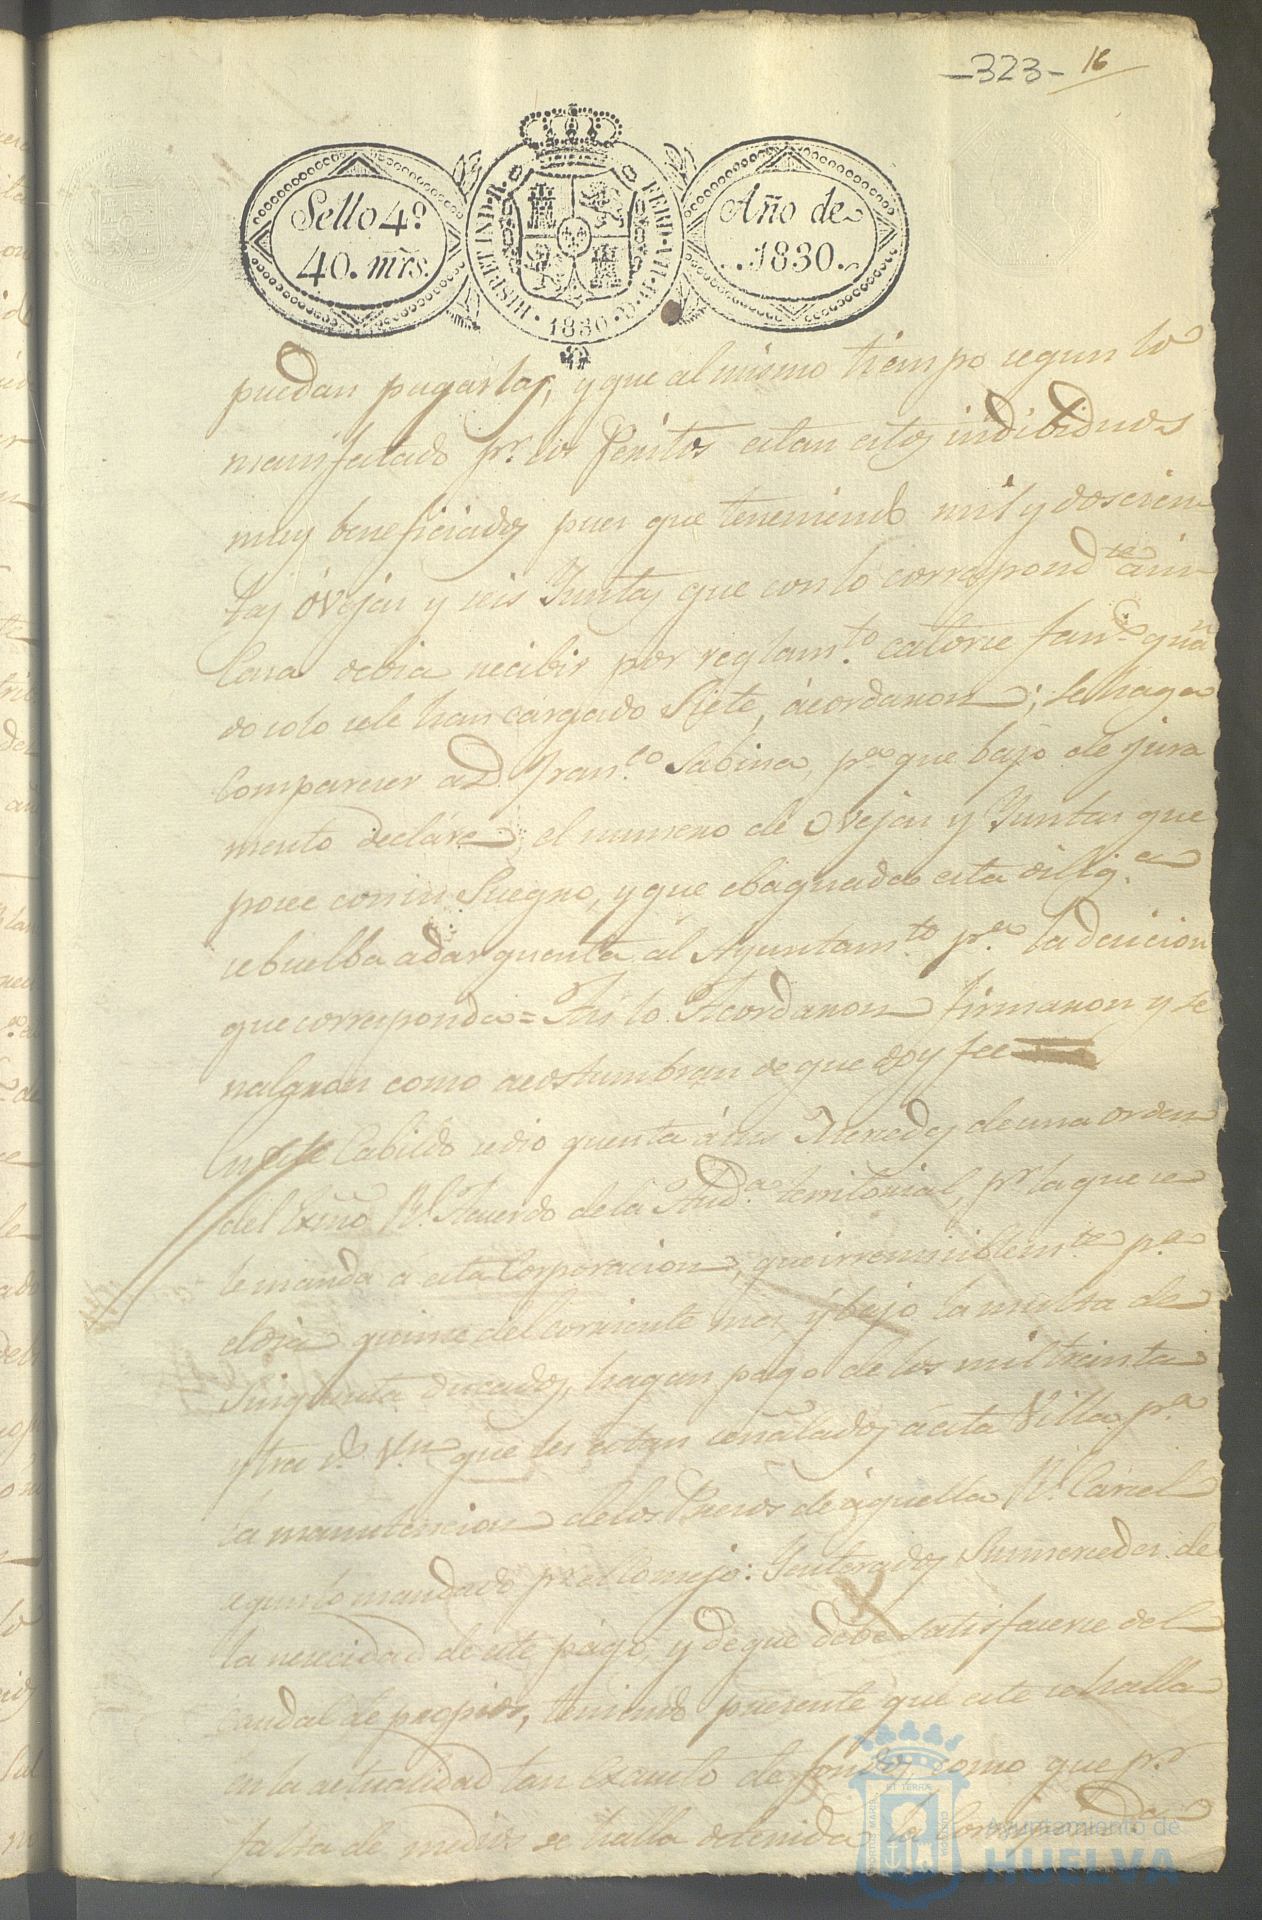 -323- 16
Sello 4º
40. mrs.
HISP. ET IND. R. FERD. VII. D. G. 1830
Año de
1830.
puedan pagarlas, y que al mismo tiempo segun lo
manifestado pr. los Peritos estan estos indibiduos
muy beneficiados pues que teneniendo mil y doscien
tas óvejas y seis Yuntas que con lo correspondte. a su
Casa debia recibir por reglamto. catorce fans. quan
do solo se le han cargado Siete, ácordaron; se haga
Comparecer a D. Franco. Sabina, pa. que bajo de jura
mento decláre, el numero de Ovejas y Yuntas que
posee con su Suegro, y que ebaquada esta dilliga.
se buelba a dar quenta al Ayuntamto. pa. la decicion
que corresponda = Asi lo Acordaron firmaron y se
ñalaron como acostumbran de que doy fee
n este Cabildo se dio quenta á sus Mercedes de una orden
del Exmo. Rl. Acuerdo de la Auda. territorial, pr. la que se
le manda á esta Corporacion, que irremisiblemte. pa.
el dia quince del corriente mes, y bajo la multa de
Sinquenta ducados, hagan pago de los mil treinta
y tres rs. Vn. que les estan señalados á esta Villa pa.
la manutencion de los Presos de áquella Rl. Cárcel
segun lo mandado pr. el Consejo: Ynterados Sus mercedes de
la nececidad de este págo, y de que debe satisfacerse del
caudal de propios, teniendo precente que este se halla
en la actualidad tan Exausto de fondos, como que pr.
falta de medios se halla detenida la
PORTUS MARIS ET TERRAE CUSTODIA
Ayuntamiento de
HUELVA